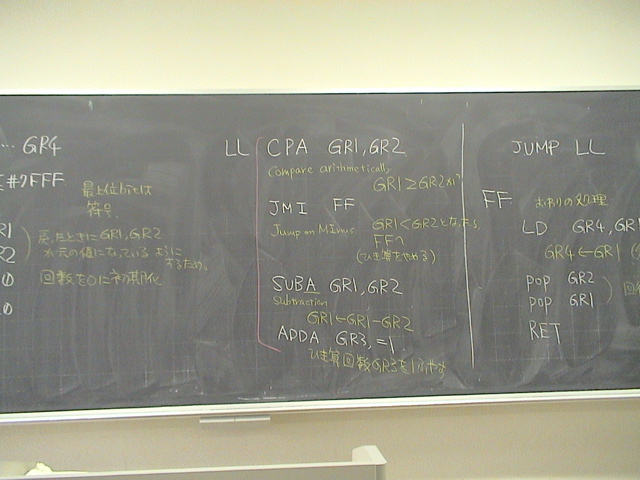 … GR4
#7FFF
最上位bitは
符号
R1
R2
戻ったときにGR1, GR2
が元の値になっているように
するため。
0
回数を0に初期化
0
LL CPA GR1, GR2
Compare arithmetically
GR1≥GR2か?
JMI FF
Jump on Minus
GR1<GR2となったら
FFへ
(ひき算をやめる)
SUBA GR1, GR2
Subtraction
GR1←GR1-GR2
ADDA GR3, =1
ひき算回数GR3を1ふやす
JUMP LL
FF おわりの処理
LD GR4, GR1
GR4←GR1
POP GR2
POP GR1
RET